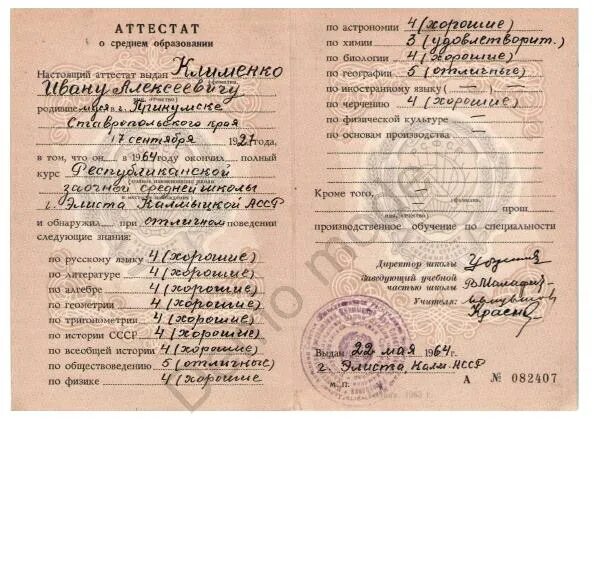 АТТЕСТАТ
о среднем образовании
Настоящий аттестат выдан Клименко
(фамилия,
Ивану Алексеевичу
имя, отчество)
родивше муся в г. Прикумске
Ставропольского края
17 сентября 1927 года,
в том, что он в 1964 году окончил полный
курс Республиканской
(полное наименование школы
заочной средней школы
и местонахождение)
г. Элиста Калмыцкой АССР
и обнаружил при отличном поведении
следующие знания:
по русскому языку 4 (хорошие)
по литературе 4 (хорошие)
по алгебре 4 (хорошие)
по геометрии 4 (хорошие)
по тригонометрии 4 (хорошие)
по истории СССР 4 (хорошие)
по всеобщей истории 4 (хорошие)
по обществоведению 5 (отличные)
по физике 4 (хорошие
по астрономии 4 (хорошие)
по химии 3 (удовлетворит.)
по биологии 4 (хорошие)
по географии 5 (отличные)
по иностранному языку (—) —
по черчению 4 (хорошие)
по физической культуре —
по основам производства —
Кроме того, —
(фамилия,
имя, отчество)
прош
производственное обучение по специальности
Директор школы
Заведующий учебной
частью школы
Учителя:
Выдан 22 мая 1964 г.
г. Элиста Калм. АССР
М. П.
А № 082407
1963 г.